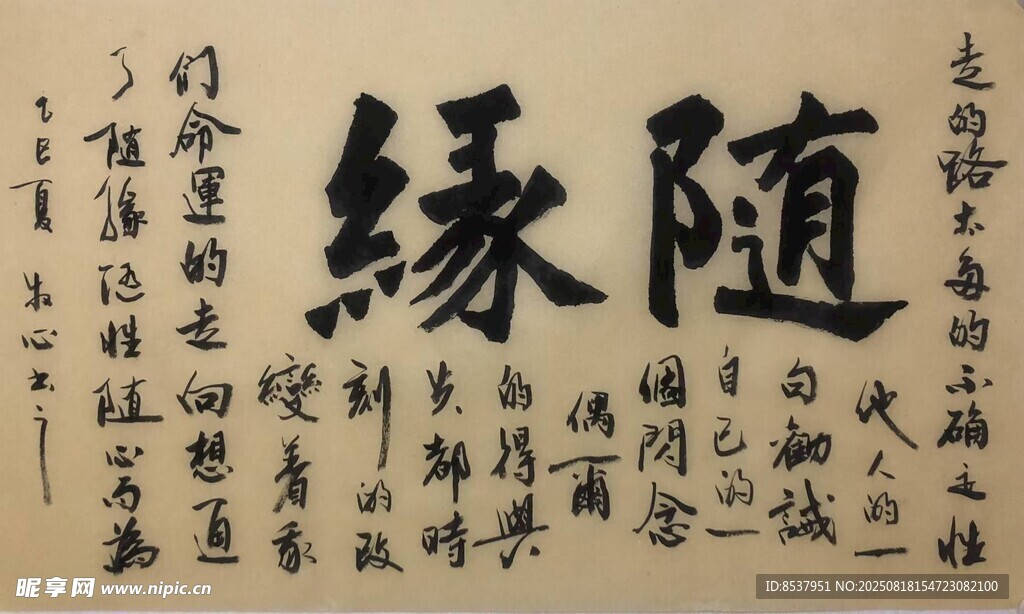 随緣
走的路太多的不确定性
他人的一
句勸誡
自己的一
個閃念
偶爾
的得與
失都時
刻的改
變着我
們命運的走向想通
了随緣随性随心而為
乙巳夏 牧心书之
昵享网 www.nipic.cn
ID:8537951 NO:20250818154723082100